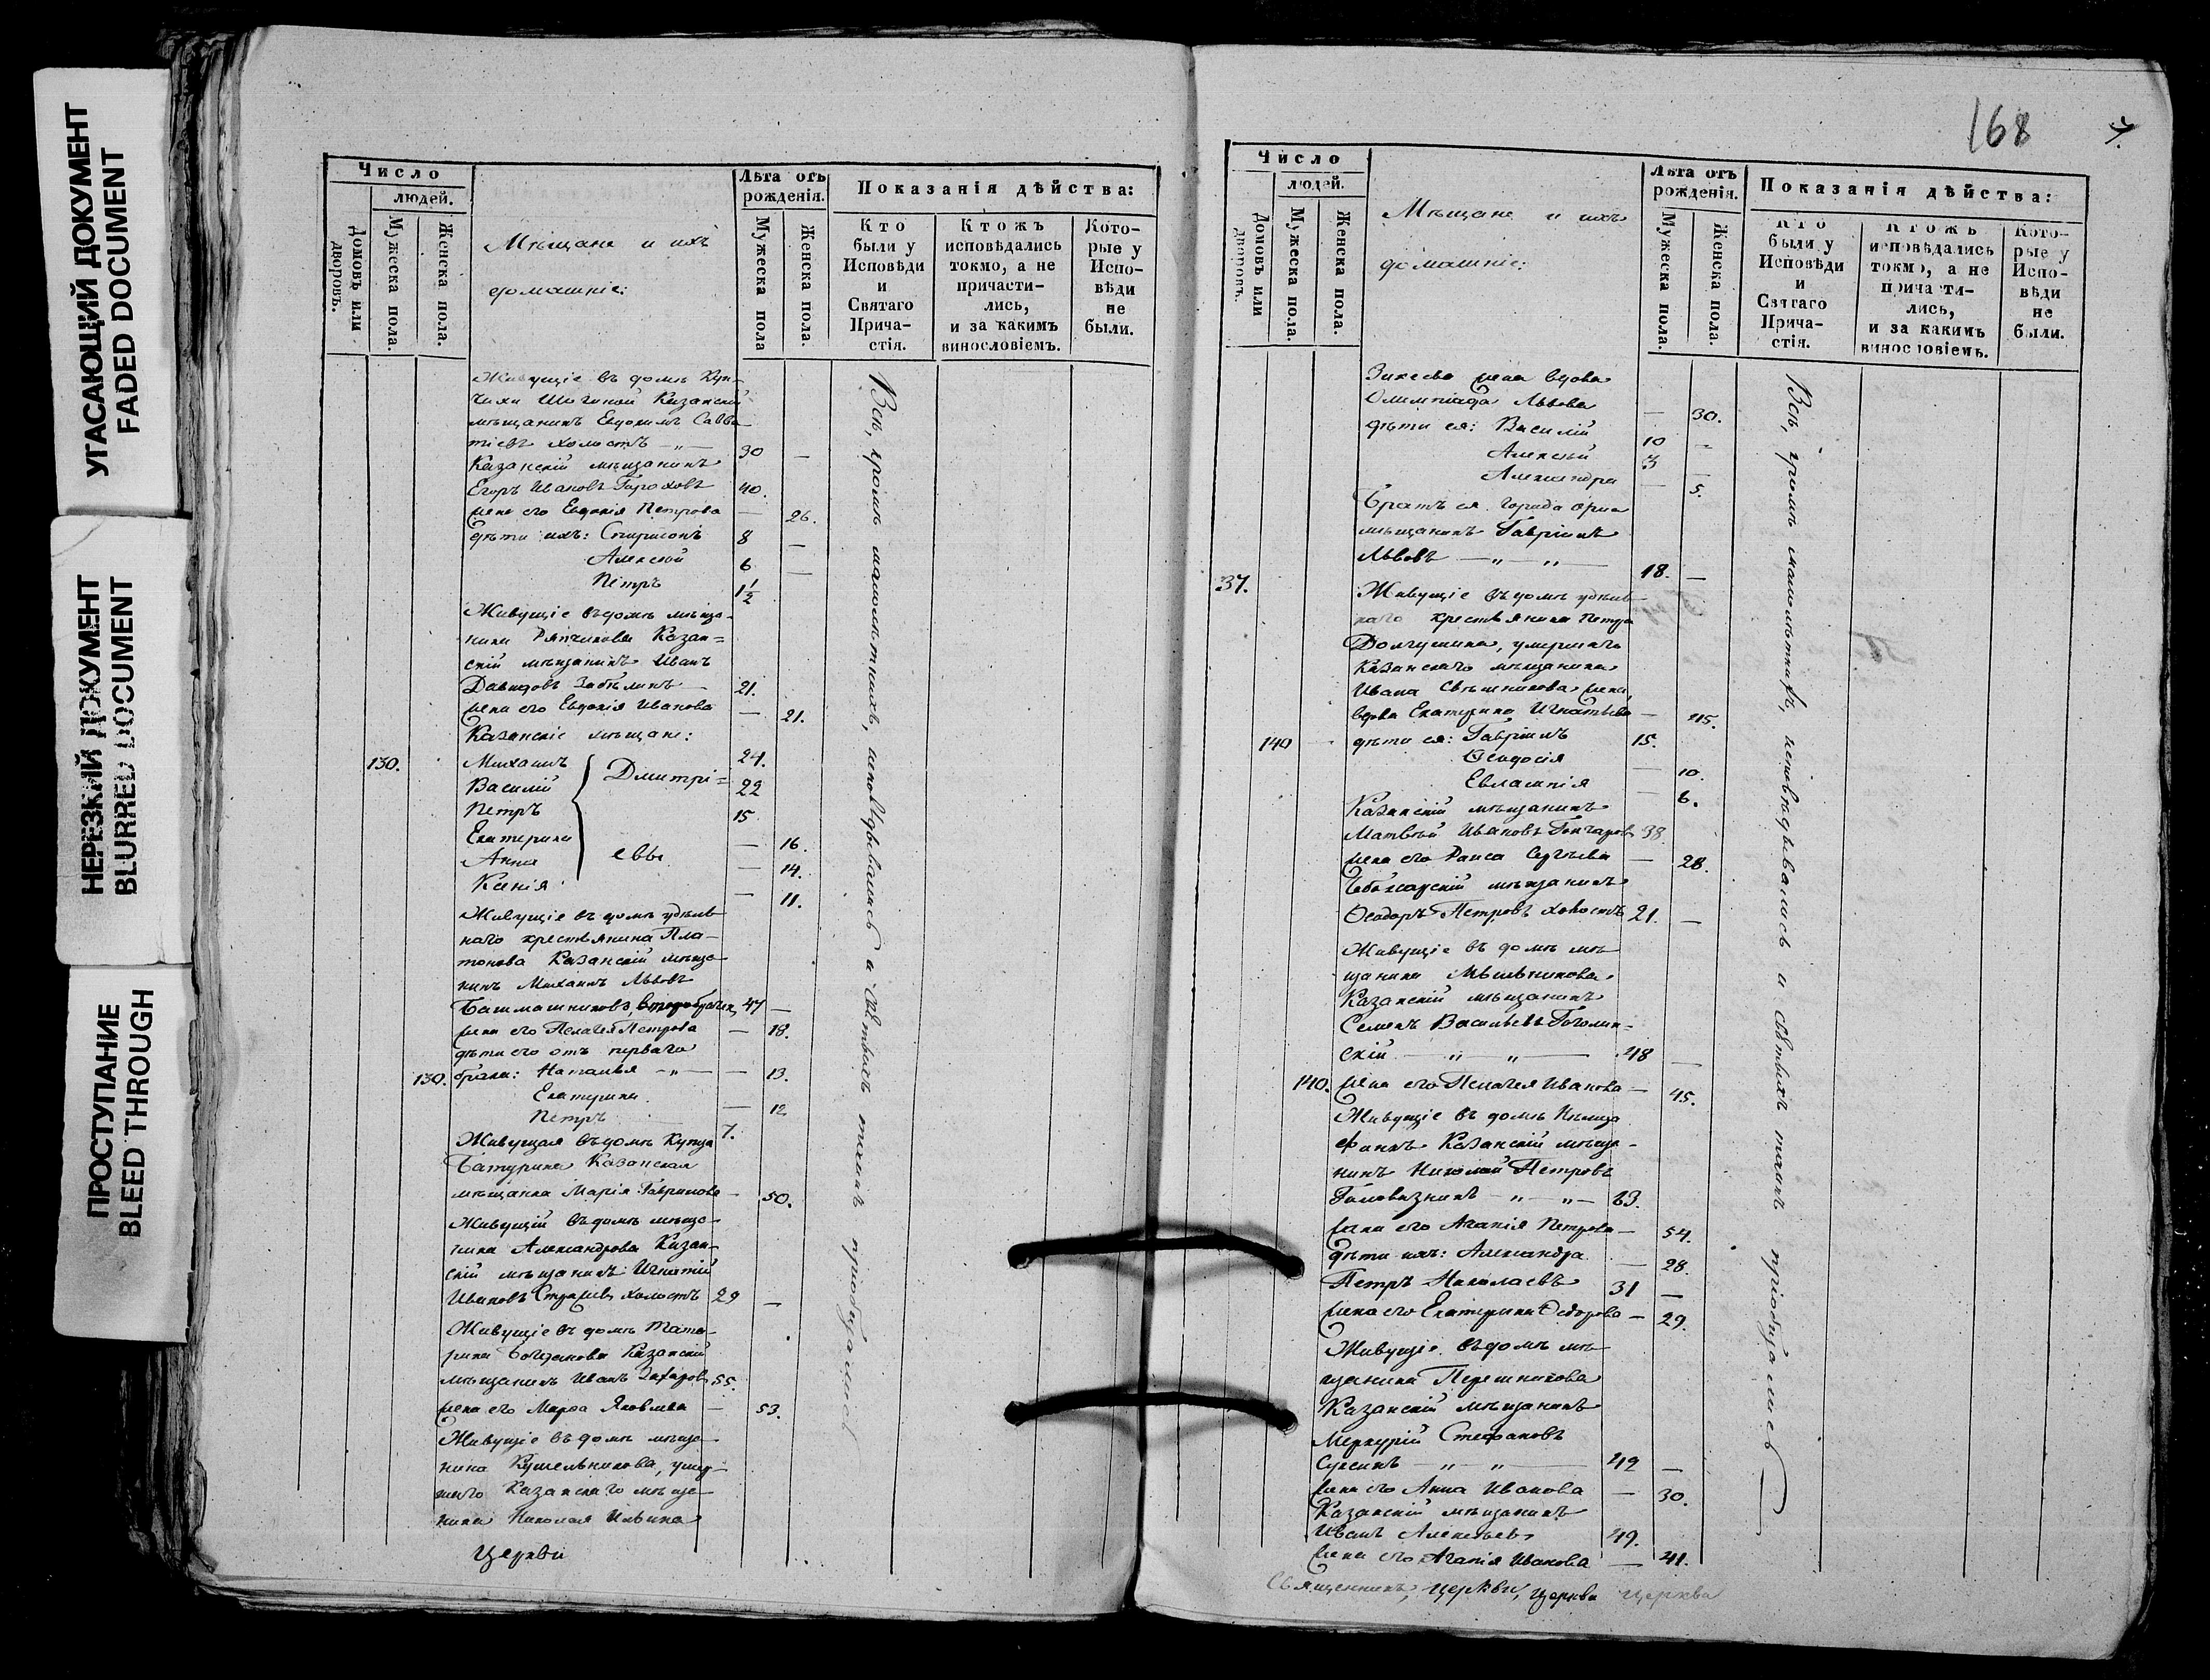 УГАСАЮЩИЙ ДОКУМЕНТ
FADED DOCUMENT
НЕРЕЗКИЙ ДОКУМЕНТ
BLURRED DOCUMENT
ПРОСТУПАНИЕ
BLEED THROUGH
Число
людей.
Домовъ или дворовъ.
Мужеска пола.
Женска пола.
Мѣщане и ихъ
домашніе:
Лѣта отъ рожденія.
Мужеска пола
Женска пола.
Показанія дѣйства:
Кто были у Исповѣди и Святаго Прича-стія.
Ктожъ исповѣдались токмо, а не причасти-лись, и за какимъ винословіемъ.
Кото-рые у Испо-вѣди не были.
Живущіе въ домѣ Куп-
чихи Казанскій
мѣщанинъ Евдокимъ Савва-
тіевъ холостъ -„- 30 -
Казанскій мѣщанинъ
Егоръ Ивановъ Гороховъ 40.
жена его Евдокія Петрова - 26.
дѣти ихъ: Спиридонъ 8 -
Алексѣй 6 -
Петръ 1½
Живущіе въ домѣ мѣща-
нина Казан=
скій мѣщанинъ Иванъ
Давидовъ Забѣлинъ 21.
жена его Евдокія Иванова - 21.
Казанскіе мѣщане:
130. Михаилъ 24.
Василій Дмитрі= 22
Петръ 15
Екатерина - 16.
Анна евы - 14.
Ксенія - 11.
Живущіе въ домѣ удѣль
наго крестьянина Пла-
тонова Казанскій мѣща-
нинъ Михаилъ Львовъ
Башмашниковъ, второбрачен. 47 -
жена его Пелагея Петрова - 18.
дѣти его отъ перваго
130. брака: Наталья -„- - 13.
Екатерина - 12
Петръ 7.
Живущая въ домѣ Купца
Батурина Казанская
мѣщанка Марія Гаврилова - 50.
Живущій въ домѣ мѣща-
нина Александрова Казан-
скій мѣщанинъ Игнатій
Ивановъ холостъ 29 -
Живущіе въ домѣ Тата-
рина Казанскій
мѣщанинъ Иванъ Захаровъ 55.
жена его Марѳа Яковлева - 53.
Живущіе въ домѣ мѣща-
нина Кушельникова, умер-
шаго Казанскаго мѣща-
нина Николая Ильина
Церкви
Всѣ, кромѣ малолѣтнихъ, исповѣдывались и святыхъ таинъ пріобщались
168
Число
людей.
Домовъ или дворовъ.
Мужеска пола.
Женска пола.
Мѣщане и ихъ
домашніе:
Лѣта отъ рожденія.
Мужеска пола.
Женска пола.
Показанія дѣйства:
Кто были у Исповѣди и Святаго Прича-стія.
Ктожъ исповѣдались токмо, а не причасти-лись, и за какимъ винословіемъ.
Кото-рые у Испо-вѣди не были.
жена вдова
Олимпіада Львова - 30.
дѣти ея: Василій 10 -
Алексѣй 3 -
Александра - 5.
Братъ ея города Орла
мѣщанинъ Гавріилъ
Львовъ -„-„- 18. -
37. Живущіе въ домѣ удѣль
наго крестьянина Петра
Долгушина, умершаго
Казанскаго мѣщанина
Ивана Свѣшникова жена,
вдова Екатерина Игнатьева - 45.
140 дѣти ея: Гавріилъ 15.
Ѳеодосія - 10.
Евлампія - 6.
Казанскій мѣщанинъ
Матвѣй Ивановъ Гончаровъ 38.
жена его Раиса Сергѣева - 28.
Чебоксарскій мѣщанинъ
Ѳеодоръ Петровъ холостъ 21. -
Живущіе въ домѣ мѣ
щанина Мѣльникова
Казанскій мѣщанинъ
Семенъ Васильевъ
скій -„-„- 48 -
140. жена его Пелагея Иванова - 45.
Живущіе въ домѣ Нѣмца
Финкъ Казанскій мѣща-
нинъ Николай Петровъ
-„-„- 63.
жена его Агапія Петрова - 54.
дѣти ихъ: Александра - 28.
Петръ Николаевъ 31 -
жена его Екатерина Ѳедорова - 29.
Живущіе въ домѣ мѣ
щанина
Казанскій мѣщанинъ
Меркурій Стефановъ
-„-„- 42 -
жена его Анна Иванова - 30.
Казанскій мѣщанинъ
Иванъ Алексѣевъ 49.
жена его Агапія Иванова - 41.
Священникъ, Церкви, Церкви Церкви
Всѣ, кромѣ малолѣтнихъ, исповѣдывались и святыхъ таинъ пріобщались